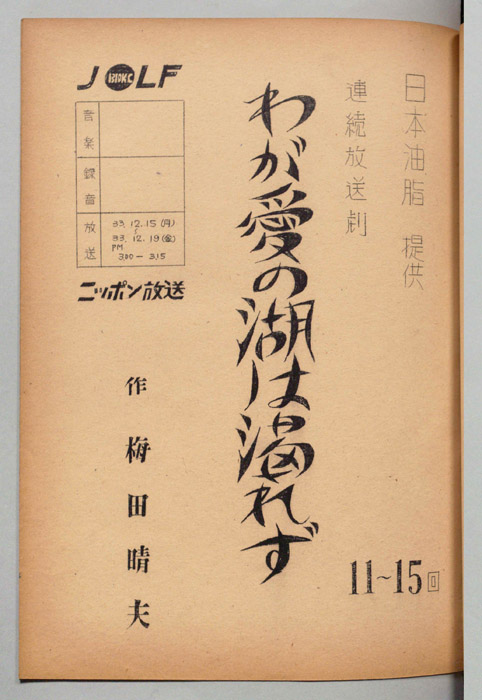 日本油脂 提供
連続放送劇
わが愛の湖は涸れず
11~15回
JOLF
音楽
録音
放送
33. 12. 15 (月)
~
33. 12. 19 (金)
PM
3.00 — 3.15
ニッポン放送
作 梅田晴夫